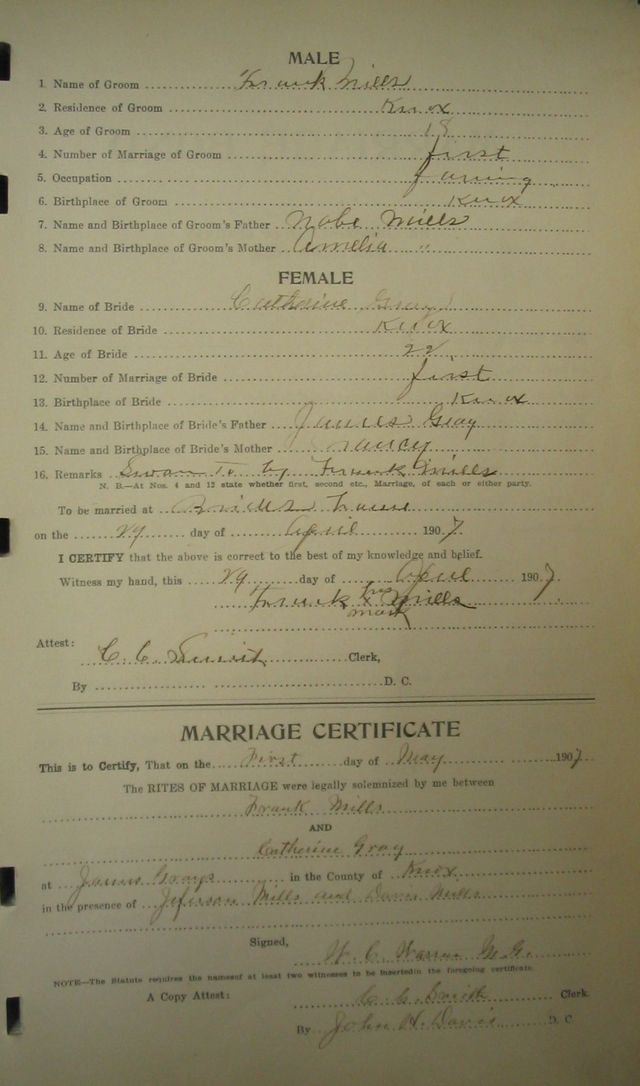 MALE
1. Name of Groom Frank Mills
2. Residence of Groom Knox
3. Age of Groom 18
4. Number of Marriage of Groom first
5. Occupation farming
6. Birthplace of Groom Knox
7. Name and Birthplace of Groom's Father Nobe Mills
8. Name and Birthplace of Groom's Mother Amelia "
FEMALE
9. Name of Bride Catherine Gray
10. Residence of Bride Knox
11. Age of Bride 22
12. Number of Marriage of Bride first
13. Birthplace of Bride Knox
14. Name and Birthplace of Bride's Father James Gray
15. Name and Birthplace of Bride's Mother Nancy
16. Remarks Swan To by Frank Mills
N. B.—At Nos. 4 and 12 state whether first, second etc., Marriage, of each or either party.
To be married at
on the 29 day of April 1907
I CERTIFY that the above is correct to the best of my knowledge and belief.
Witness my hand, this 29 day of April 1907
Frank his x Mills
mark
Attest:
C. C. Smith Clerk,
By D. C.
MARRIAGE CERTIFICATE
This is to Certify, That on the First day of May 1907
The RITES OF MARRIAGE were legally solemnized by me between
Frank Mills
AND
Catherine Gray
at James Grays in the County of Knox
in the presence of Jeferson Mills and Davis Mills
Signed,
W. C. Warren M. G.
NOTE—The Statute requires the namesof at least two witnesses to be insertedin the foregoing certificate.
A Copy Attest: C. C. Smith Clerk
By John H. Davis D. C